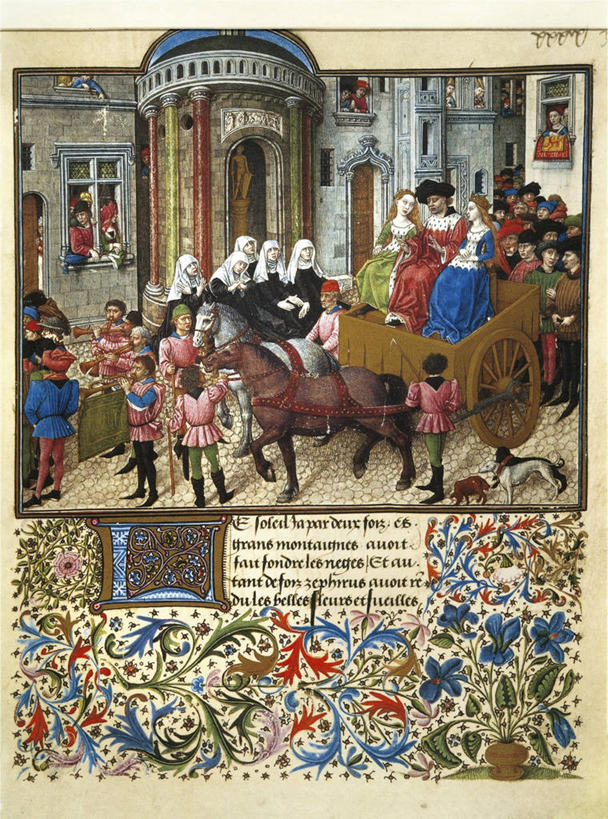 E soleil ia par deux foiz es
grans montaignes auoit
fait fondre les neges Et au
tant de foiz zephirus auoit re
du les belles fleurs et fueilles